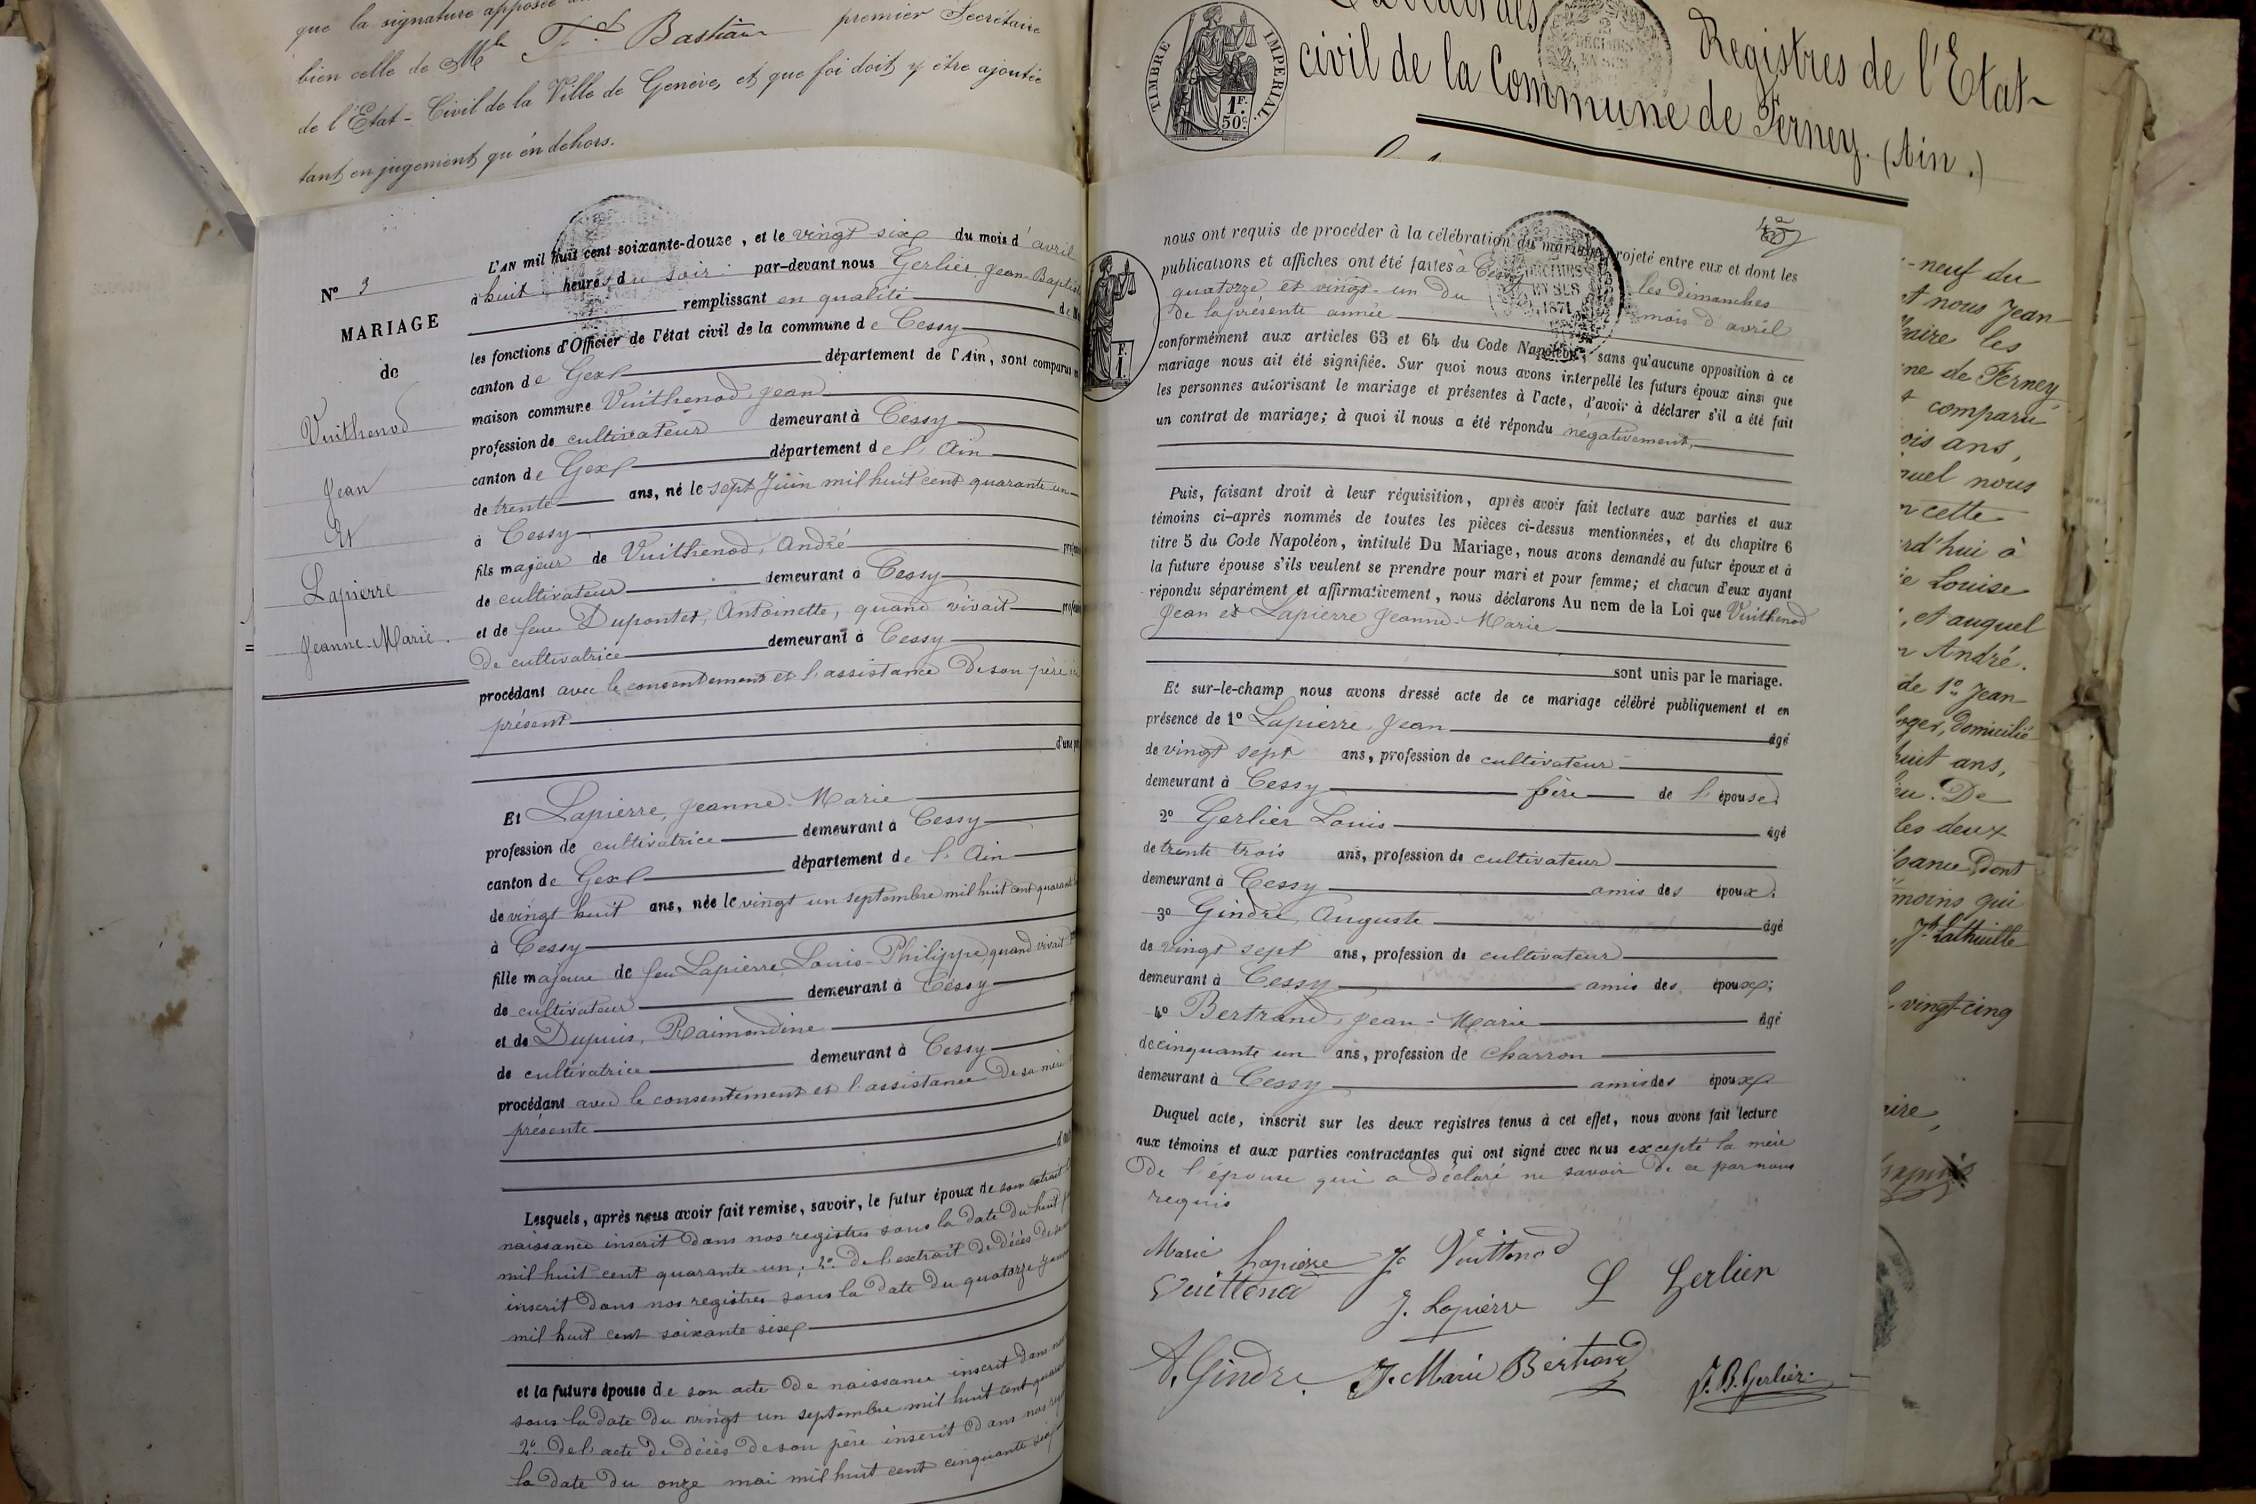 que la signature apposée
bien celle de Mr Fd Bastian premier Secrétaire
de l'Etat-Civil de la Ville de Genève, et que foi doit y être ajoutée
tant en jugement qu'en dehors.
Nº 3
MARIAGE
de
Vuithenod
Jean
Et
Lapierre
Jeanne-Marie.
L'AN mil huit cent soixante-douze, et le vingt six du mois d'avril
à huit heures du soir par-devant nous Gerlier, Jean-Baptiste
remplissant en qualité de
les fonctions d'Officier de l'état civil de la commune de Cessy
canton de Gex département de l'Ain, sont comparus en
maison commune Vuithenod, Jean
profession de cultivateur demeurant à Cessy
canton de Gex département de l'Ain
de trente ans, né le sept Juin mil huit cent quarante un
à Cessy
fils majeur de Vuithenod, André
de cultivateur demeurant à Cessy
et de feue Dupontet, Antoinette, quand vivait
de cultivatrice demeurant à Cessy
procédant avec le consentement et l'assistance de son père ici
présent
d'une part
Et Lapierre, Jeanne-Marie
profession de cultivatrice demeurant à Cessy
canton de Gex département de l'Ain
de vingt huit ans, née le vingt un septembre mil huit cent quarante
à Cessy
fille majeure de feu Lapierre Louis-Philippe, quand vivait
de cultivateur demeurant à Cessy
et de Dupuis, Raimondine
de cultivatrice demeurant à Cessy
procédant avec le consentement et l'assistance de sa mère
présente
Lesquels, après nous avoir fait remise, savoir, le futur époux de son extrait de
naissance inscrit dans nos registres sous la date du huit
mil huit cent quarante-un; 2º De l'extrait de décès de sa
inscrit dans nos registres sous la date du quatorze
mil huit cent soixante six
et la future épouse de son acte de naissance inscrit dans nos
sous la date du vingt un septembre mil huit cent quarante
2º De l'acte de décès de son père inscrit dans nos
la date du onze mai mil huit cent cinquante six
TIMBRE IMPERIAL.
1F. 50c.
Registres de l'Etat-
civil de la Commune de Ferney. (Ain.)
nous ont requis de procéder à la célébration du mariage projeté entre eux et dont les
publications et affiches ont été faites à Cessy les dimanches
quatorze et vingt-un du mois d'avril
de la présente année
conformément aux articles 63 et 64 du Code Napoléon, sans qu'aucune opposition à ce
mariage nous ait été signifiée. Sur quoi nous avons interpellé les futurs époux ainsi que
les personnes autorisant le mariage et présentes à l'acte, d'avoir à déclarer s'il a été fait
un contrat de mariage; à quoi il nous a été répondu négativement,
Puis, faisant droit à leur réquisition, après avoir fait lecture aux parties et aux
témoins ci-après nommés de toutes les pièces ci-dessus mentionnées, et du chapitre 6
titre 5 du Code Napoléon, intitulé Du Mariage, nous avons demandé au futur époux et à
la future épouse s'ils veulent se prendre pour mari et pour femme; et chacun d'eux ayant
répondu séparément et affirmativement, nous déclarons Au nom de la Loi que Vuithenod
Jean et Lapierre Jeanne-Marie
sont unis par le mariage.
Et sur-le-champ nous avons dressé acte de ce mariage célébré publiquement et en
présence de 1º Lapierre, Jean âgé
de vingt sept ans, profession de cultivateur
demeurant à Cessy frère de l'épouse;
2º Gerlier Louis âgé
de trente trois ans, profession de cultivateur
demeurant à Cessy amis des époux;
3º Gindre, Auguste âgé
de vingt sept ans, profession de cultivateur
demeurant à Cessy amis des époux;
4º Bertrand, Jean-Marie âgé
de cinquante un ans, profession de charron
demeurant à Cessy amis des époux
Duquel acte, inscrit sur les deux registres tenus à cet effet, nous avons fait lecture
aux témoins et aux parties contractantes qui ont signé avec nous excepté la mère
de l'épouse qui a déclaré ne savoir de ce par nous
requis
Marie Lapierre J. Vuittenod
Vuittenod J. Lapierre L Gerlier
A. Gindre. J. Marie Bertrand J. B. Gerlier.
-neuf du
et nous Jean
Maire les
ne de Ferney
t comparu
ois ans,
quel nous
n cette
rd'hui à
ie Louise
, et auquel
n André.
de 1º Jean
loger, domicilié
huit ans,
eu. De
les deux
sance, dont
moins qui
Jh Lathuille
vingt-cinq
aire,